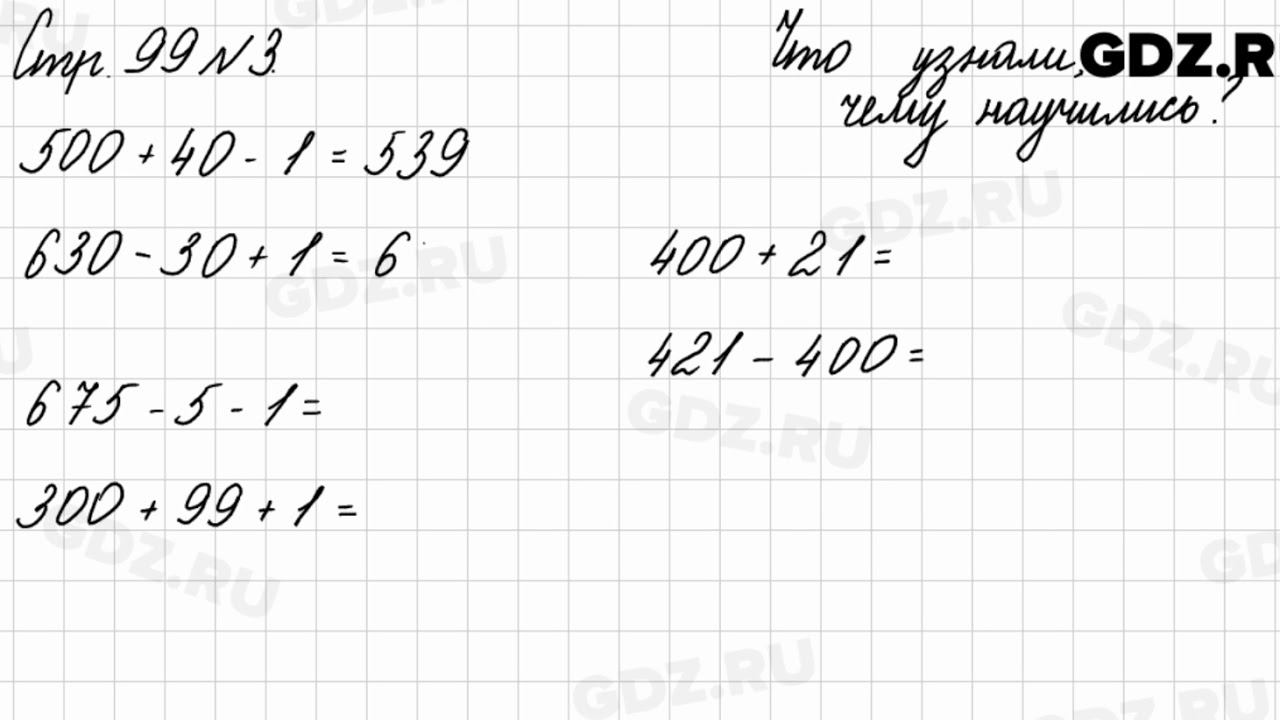 Стр. 99 № 3.
Что узнали, GDZ.R
чему научились?
500 + 40 - 1 = 539
630 - 30 + 1 = 6
400 + 21 =
421 - 400 =
675 - 5 - 1 =
300 + 99 + 1 =
GDZ.RU
GDZ.RU
GDZ.RU
GDZ.RU
GDZ.RU
GDZ.RU